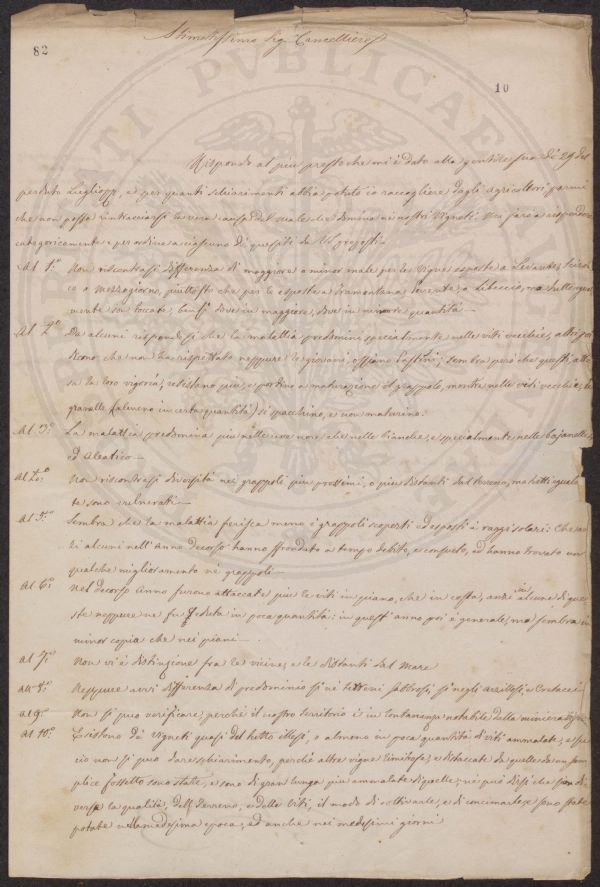 82
Stimatissimo Sig. Cancelliere
10
Rispondo al più presto che mi è dato alla gentile sua de' 29 del
perduto Luglio, e per quanti schiarimenti abbia potuto io raccogliere dagli agricoltori, parmi
che non possa rintracciarsi la vera causa del male che domina nei nostri Vigneti. Mi farò a rispondere
categoricamente e per ordine a ciascuno de' quesiti da
Al 1.º Non riscontrasi differenza di maggiore o minor male per le Vigne esposte a Levante,
o a Mezzogiorno, piuttosto che per le esposte a Tramontana, Ponente, o Libeccio, ma tutte
mente son toccate, bensì dove in maggiore, dove in minore quantità
Al 2.º Da alcuni rispondesi che la malattia predomini specialmente nelle viti vecchie, altri poi
dicono che non ha rispettato neppure le giovani, ossiano Pastini; sembra però che questi, atte-
sa la loro vigoria, resistano più, e portino a maturazione il grappolo, mentre nelle viti vecchie le
granelle (almeno in certa quantità) si spacchino, e non maturino.
Al 3.º La malattia predomina più nelle uve nere che nelle bianche, e specialmente nelle
ed Aleatico
Al 4.º Non riscontrasi diversità nei grappoli più prossimi, o più distanti dal terreno, ma tutti egualmen-
te sono vulnerati
Al 5.º Sembra che la malattia ferisca meno i grappoli scoperti ed esposti a' raggi solari: Che an-
zi alcuni nell'Anno decorso hanno sfrondato a tempo debito, e consueto, ed hanno trovato un
qualche miglioramento ne' grappoli
Al 6.º Nel decorso Anno furono attaccate più le viti in piano, che in costa, anzi in alcune di que-
ste neppure ne fu veduta in poca quantità: in quest'anno poi è generale, ma sembra in
minor copia che nei piani
Al 7.º Non vi è distinzione fra le vicine, e le distanti dal mare
All' 8.º Neppure avvi differenza di predominio sì ne' terreni sabbiosi, sì negli argillosi, e Cretacei
Al 9.º Non si può verificare, perchè il nostro territorio è in lontananza notabile dalle miniere
Al 10.º Esistono de' Vigneti quasi del tutto illesi, o almeno in poca quantità di viti ammalate, e
ciò non si può dare schiarimento, perchè altre vigne limitrofe, e distaccate da quelle da un sem-
plice fossetto sono state, e sono di gran lunga più ammalate di quelle; nè può dirsi che sia di-
versa la qualità del terreno, e delle Viti, il modo di coltivarle, e di concimarle e sono state
potate nella medesima epoca, ed anche nei medesimi giorni